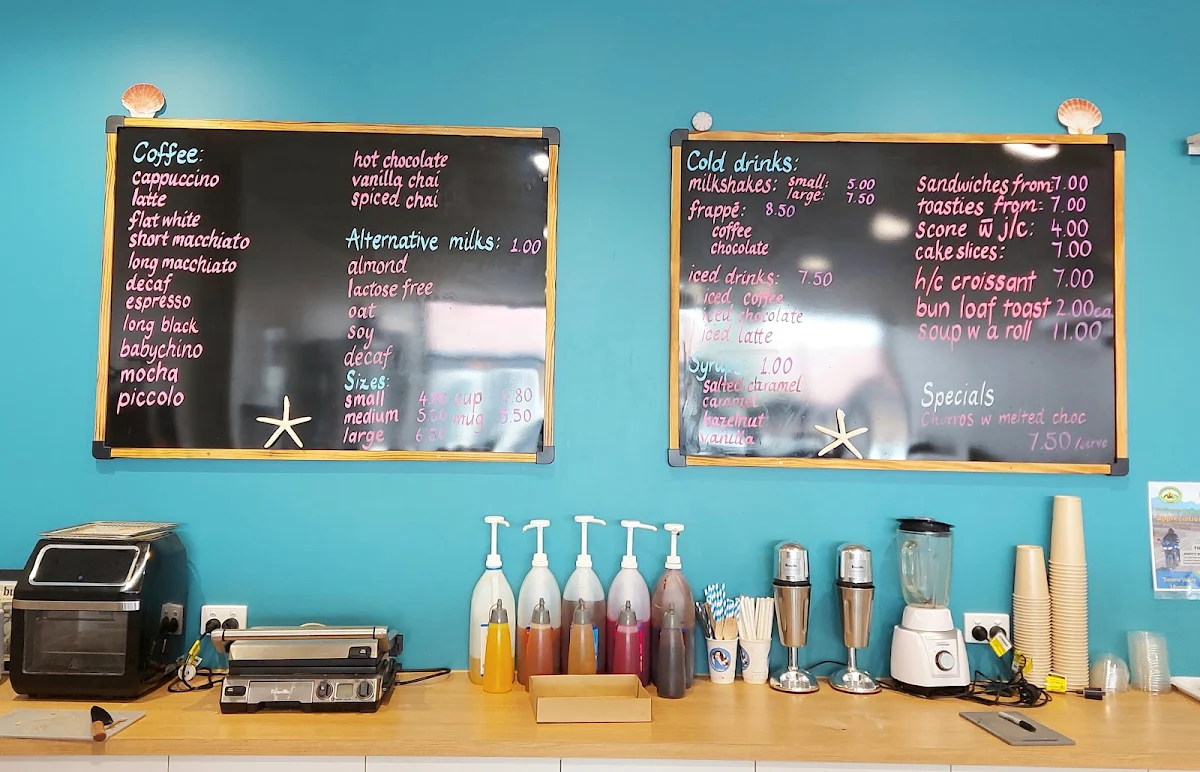 Coffee:
cappuccino
latte
flat white
short macchiato
long macchiato
decaf
espresso
long black
babychino
mocha
piccolo
hot chocolate
vanilla chai
spiced chai
Alternative milks: 1.00
almond
lactose free
oat
soy
decaf
Sizes:
small cup
medium mug 5.50
large
Cold drinks:
milkshakes: small: 5.00
large: 7.50
frappé: 8.50
coffee
chocolate
iced drinks: 7.50
iced coffee
iced chocolate
iced latte
Syrups 1.00
salted caramel
caramel
hazelnut
vanilla
Sandwiches from: 7.00
toasties from: 7.00
scone w̅ j/c: 4.00
cake slices: 7.00
h/c croissant 7.00
bun loaf toast 2.00ea
soup w a roll 11.00
Specials
Churros w melted choc
7.50 /serve